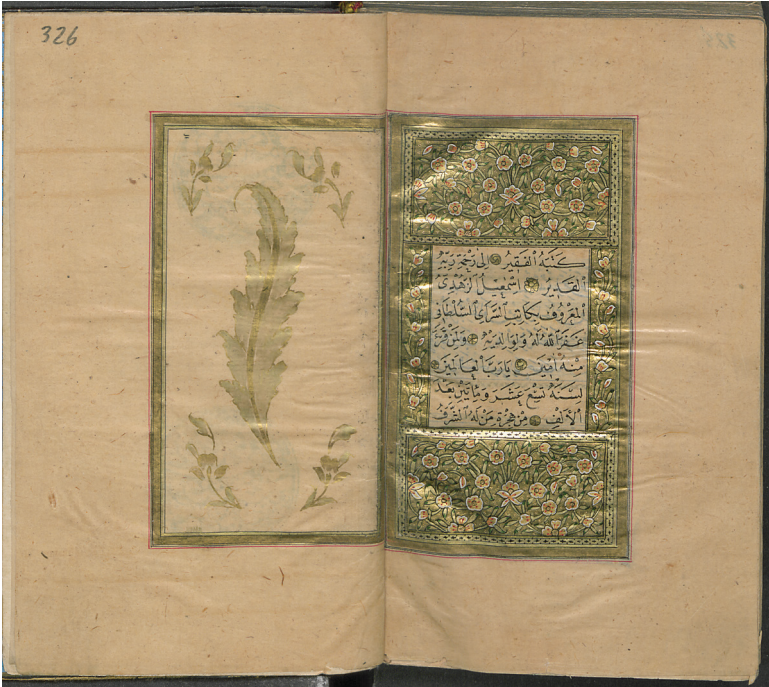 326
كَتَبَهُ الْفَقِيرُ إِلَى رَحْمَةِ رَبِّهِ
الْقَدِيرِ إِسْمٰعِيلُ الزُّهْدِيُّ
الْمَعْرُوفُ بِكَاتِبِ السَّرَايِ السُّلْطَانِي
غَفَرَ اللهُ لَهُ وَلِوَالِدَيْهِ وَلِمَنْ قَرَأَ
مِنْهُ آمِينَ يَا رَبَّ الْعَالَمِينَ
لِسَنَةِ تِسْعَ عَشَرَ وَمِائَتَيْنِ بَعْدَ
الْأَلْفِ مِنْ هِجْرَةِ مَنْ لَهُ الشَّرَفُ